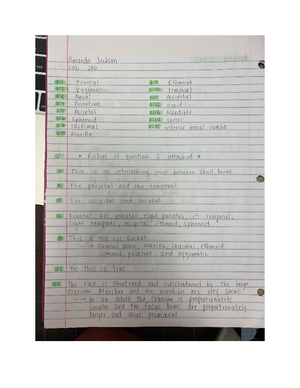 Amanda Jackson
Lab
Frontal
Ethmoid
Zygomatic
Temporal
Nasal
Occipital
Palatine
Parietal
Mandible
Sphenoid
Vomer
Lacrimal
Inferior nasal concha
Maxilla
* Picture of question 2 attached *
This is an interlocking joint between skull bones.
The parietal and the temporal.
The occipital and parietal
Frontal, left parietal, right parietal, left temporal,
right temporal, occipital, ethmoid, sphenoid
This is the eye socket
Frontal bone, Maxilla, lacrimal, ethmoid
sphenoid, palatine and zygomatic
Yes this is true
The face is shortened and overshadowed by the large
cranium. Maxillae and the mandible are very small.
In an adult the cranium is proportionately
smaller and the facial bones are proportionately
larger and more prominent